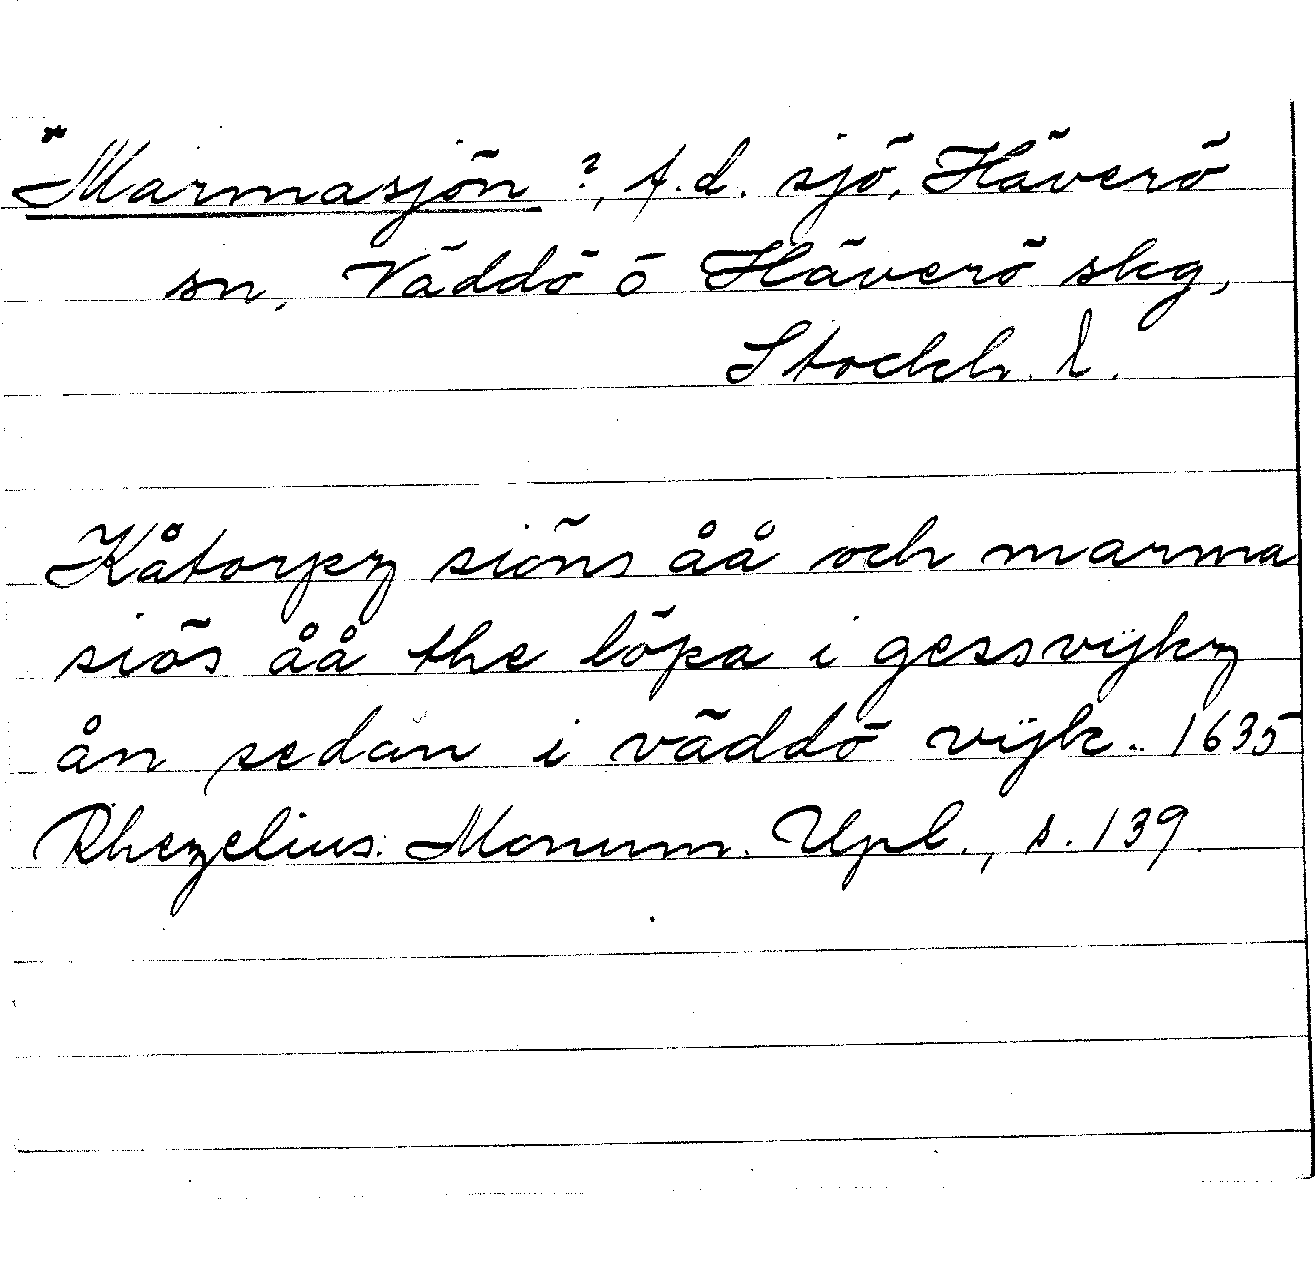 *Marmasjön ?, f.d. sjö, Häverö
sn, Väddö o Häverö skg,
Stockh. l.
Kåtorpz siöns åå och marma
siös åå the löpa i gessvijkz
ån sedan i väddö vijk. 1635
Rhezelius: Monum. Upl., s. 139